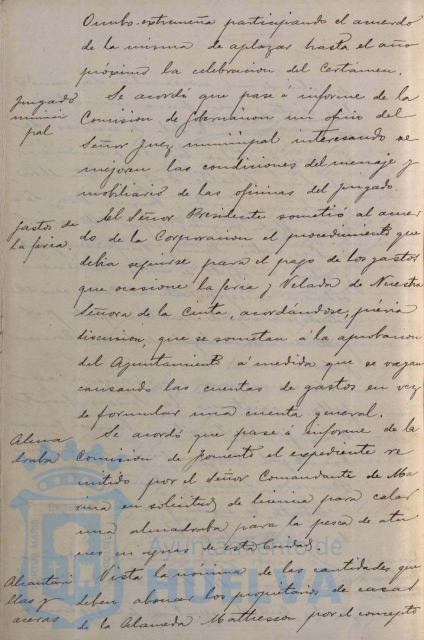 Onubo-extremeña participando el acuerdo
de la misma de aplazar hasta el año
próximo la celebracion del Certamen.
Juzgado
munici
pal
Se acordó que pase á informe de la
Comision de Gobernacion un oficio del
Señor Juez municipal interesando se
mejoren las condiciones del menaje y
mobiliario de las oficinas del juzgado.
Gastos de
la feria.
El Señor Presidente sometió al acuer
do de la Corporacion el procedimiento que
debia seguirse para el pago de los gastos
que ocasione la feria y Velada de Nuestra
Señora de la Cinta, acordándose, prévia
discusion, que se sometan á la aprobacion
del Ayuntamiento á medida que se vayan
causando las cuentas de gastos en vez
de formular una cuenta general.
Alma
draba
Se acordó que pase á informe de la
Comision de Fomento el expediente re
mitido por el Señor Comandante de Ma
rina en solicitud de licencia para calar
una almadraba para la pesca de atu
nes en aguas de esta Ciudad.
Alcantari
llas y
aceras
Vista la nómina de las cantidades que
deben abonar los propietarios de casas
de la Alameda Mathesson por el concepto
Ayuntamiento de
HUELVA